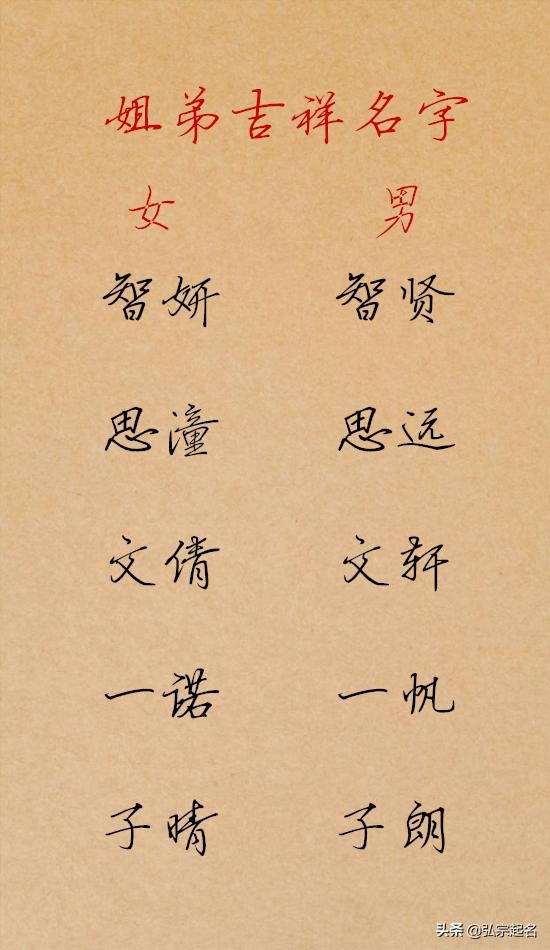 姐弟吉祥名字
女 男
智妍 智贤
思潼 思远
文倩 文轩
一诺 一帆
子晴 子朗
头条 @弘宗起名